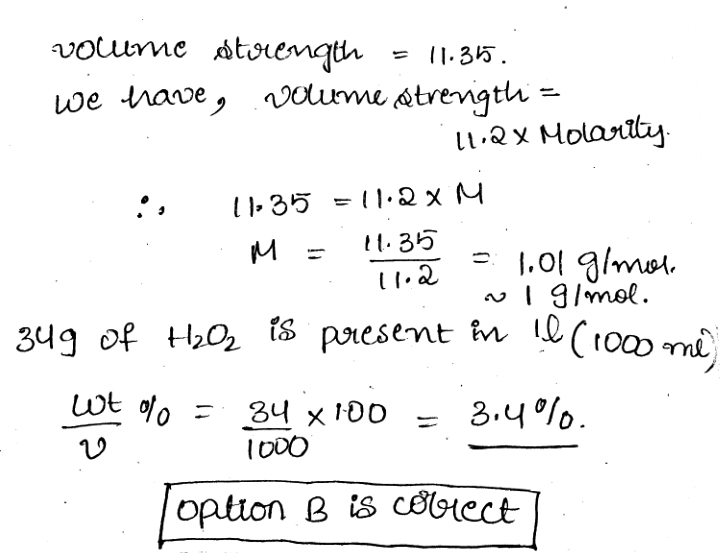 volume strength = 11.35.
we have, volume strength =
11.2 x Molarity.
∴ 11.35 = 11.2 x M
M = 11.35/11.2 = 1.01 g/mol.
~ 1 g/mol.
34g of H2O2 is present in 1l (1000 ml)
wt/v % = 34/1000 x 100 = 3.4%.
option B is correct